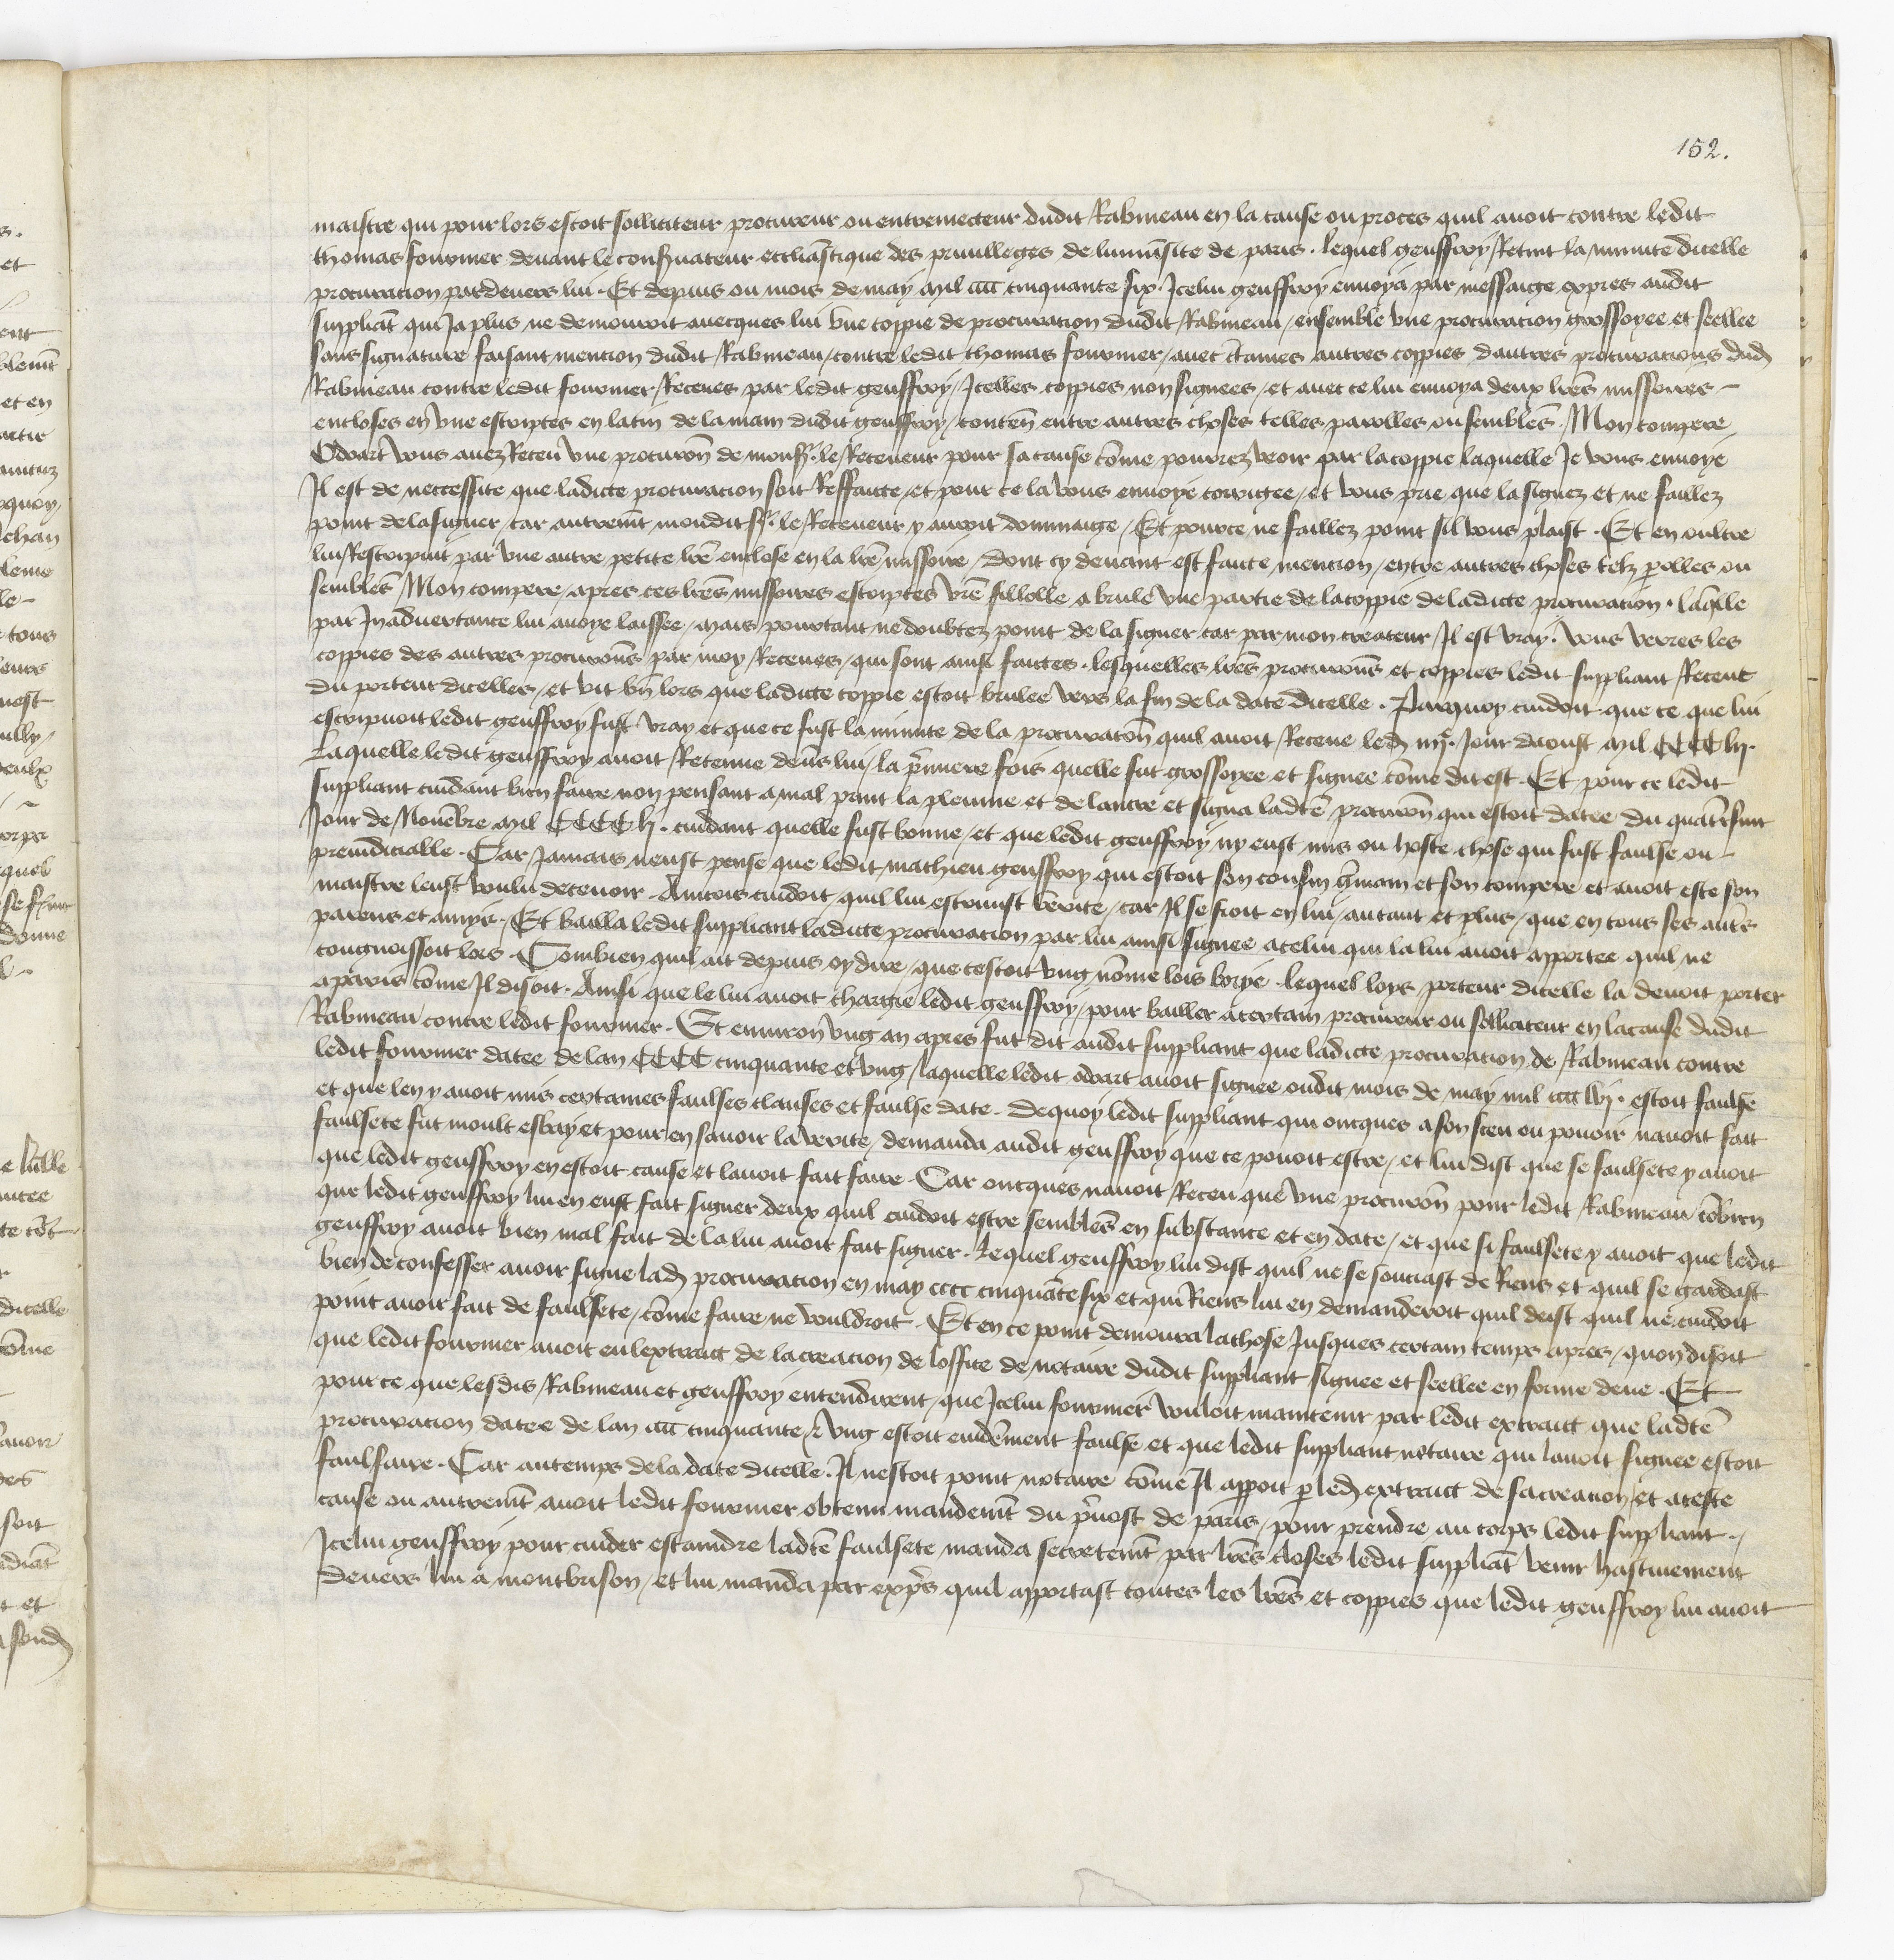 152.
maistre qui pour lors estoit solliciteur procureur ou entremecteur dudit Rabineau en la cause ou proces quil avoit contre ledit
thomas fournier devant le conservateur ecclīastique des privilleges de luniv̄site de paris . lequel geuffroy Retint la minute dicelle
procuracion pardevers lui . Et depuis ou mois de may mil cccc cinquante six . Icelui geuffroy envoya par messaige expres audit
suppliāt qui Ja plus ne demouroit avecques lui vne coppie de procuracion dudit Rabineau / ensemble vne procuracion grossoyee et scellee
sans signature faisant mention dudit Rabineau / contre ledit thomas fournier / avec c̄taines autres coppies dautres procuracions dud
Rabineau contre ledit fournier / Receues par ledit geuffroy / Icelles coppies non signees / et avec ce lui envoya deux lr̄es missoires -
encloses en vne escriptes en latin de la main dudit geuffroy / conten̄ entre autres choses telles parolles ou semblēs . Mon compere
Odoart vous avez Receu vne procurōn de mons̄ . le Receveur pour sa cause cōme pourrez veoir par la coppie laquelle Je vous envoye
Il est de neccessite que ladicte procuracion soit Reffaicte / et pour ce la vous envoye corrigee / et vous prie que la signez et ne faillez
point de la signer / car autremēt mondit s̄ . le Receveur y auroit dommaige / Et pource ne faillez point sil vous plaist . Et en oultre
lui Rescripvit par vne autre petite lr̄e enclose en la lr̄e missoire / dont cy devant est faicte mention / entre autres choses telz p̄olles ou
semblēs / Mon compere / apres ces lr̄es missoires escriptes vr̄e fillolle a brule vne partie de la coppie de ladicte procuracion . laq̄lle
par Inadvertance lui avoye laissee / mais pourtant ne doubtez point de la signer car par mon createur / Il est vray . vous verres les
coppies des autres procurōns par moy Receues / qui sont ainsi faictes . lesquelles lr̄es procurōns et coppies ledit suppliant Receut
du porteur dicelles / et vit bn̄ lors que ladicte coppie estoit brulee vers la fin de la date dicelle . Parquoy cuidoit que ce que lui
escripvoit ledit geuffroy fust vray et que ce fust la minute de la procuracōn quil avoit Receue led iiijᵉ . Jour daoust mil CCCC lij .
Laquelle ledit geuffroy avoit Retenue dev̄s lui / la p̄miere fois quelle fut grossoyee et signee cōme dit est . Et pour ce ledit
suppliant cuidant bien faire non pensant a mal print la plume et de lancre et signa ladt̄e procurōn qui estoit datee du quatr̄esme
Jour de Novēbre mil CCCC lj . cuidant quelle fust bonne / et que ledit geuffroy ny eust mis ou hoste chose qui fust faulse ou -
preiudiciable . Car Jamais neust pense que ledit mathieu geuffroy qui estoit son cousin ḡmain et son compere et avoit este son
maistre leust voulu decevoir . Aincois cuidoit quil lui escrivist vērite / car Il se fioit en lui / autant et plus / que en tous ses autr̄s
parens et amys . Et bailla ledit suppliant ladicte procuracion par lui ainsi signee a celui qui la lui avoit apportee quil ne
congnoissoit lors . Combien quil ait depuis oy dire / que cestoit vng nōme lois borye . lequel loys porteur dicelle la devoit porter
a paris cōme Il disoit . Ainsi que le lui avoit chargie ledit geuffroy / pour bailler a certain procureur ou solliciteur en la cause dudit
Rabineau contre ledit fournier . Et environ vng an apres fut dit audit suppliant que ladicte procuracion de Rabineau contre
ledit fournier datee de lan CCCC cinquante et vng / laquelle ledit odoart avoit signee oudit mois de may mil cccc lvj . estoit faulse
et que len y avoit mis certaines faulses clauses et faulse date . Dequoy ledit suppliant qui oncques a son sceu ou povoir navoit fait
faulsete fut moult esbay et pour en savoir la verite / demanda audit geuffroy que ce povoit estre / et lui dist que se faulsete y avoit
que ledit geuffroy en estoit cause et lavoit fait faire . Car oncques navoit Receu que vne procurōn pour ledit Rabineau cōbien
que ledit geuffroy lui en eust fait signer deux quil cuidoit estre semblēs en substance et en date / et que si faulsete y avoit que ledit
geuffroy avoit bien mal fait de la lui avoir fait signer . Lequel geuffroy lui dist quil ne se souciast de Riens et quil se gardast
bien de confesser avoir signe lad procuracion en may cccc cinquāte six et qui Riens lui en demanderoit quil deist quil ne cuidoit
point avoir fait de faulsete / cōme faire ne vouldroit . Et en ce point demoura la chose Jusques certain temps apres / quon disoit
que ledit fournier avoit eu lextraict de la creacion de loffice de notaire dudit suppliant signee et scellee en forme deue . Et
pour ce que lesdis Rabineau et geuffroy entendirent / que Icelui fournier vouloit maintenir par ledit extraict que ladt̄e
procuracion datee de lan cccc cinquante & vng estoit evidēment faulse et que ledit suppliant notaire qui lavoit signee estoit
faulsaire . Car au temps de la date dicelle . Il nestoit point notaire cōme Il appoit p̄ led extraict de sa creacion et a ceste
cause ou autremēt avoit ledit fournier obtenu mandemēt du p̄vost de paris / pour prendre au corps ledit suppliant . /
Icelui geuffroy pour cuider estaindre ladt̄e faulsete manda secretemēt par lr̄es closes ledit suppliāt venir hastivement
devers lui a montbrison / et lui manda par exp̄s quil apportast toutes les lr̄es et coppies que ledit geuffroy lui avoit